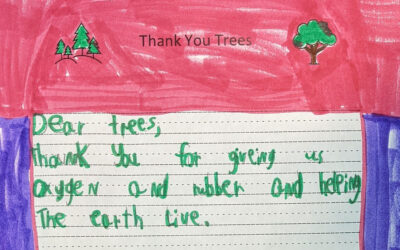 Thank You Trees
Dear trees,
Thank You for giveing us
oxygen and rubber and helping
The earth Live.